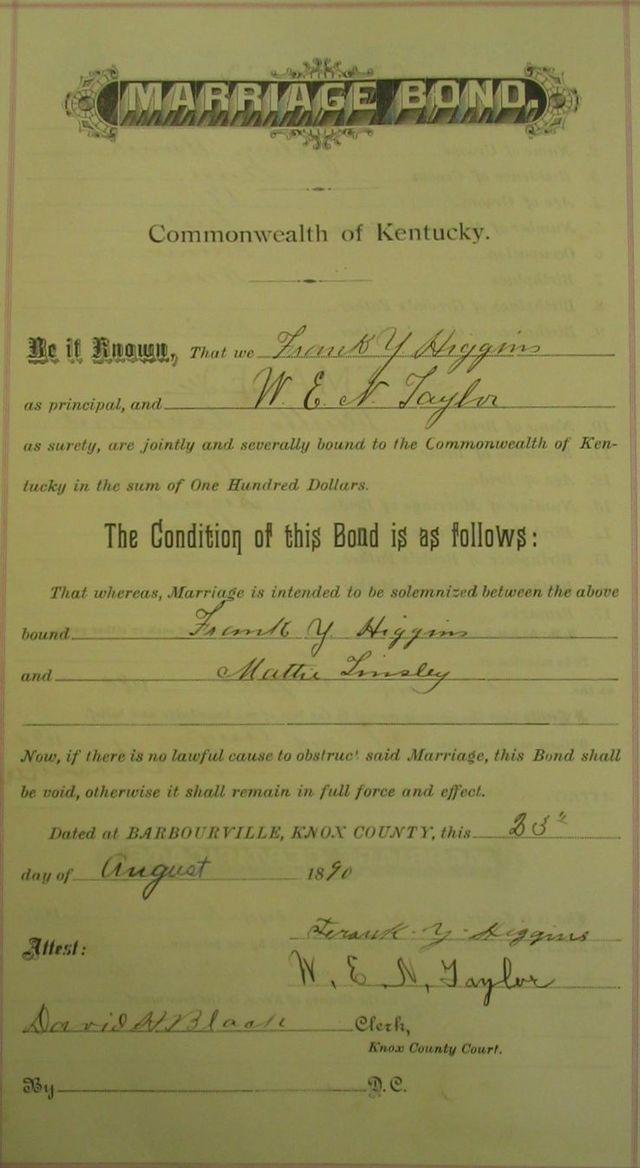 MARRIAGE BOND.
Commonwealth of Kentucky.
Be it Known, That we Frank Y Higgins
as principal, and W. E. N. Taylor
as surety, are jointly and severally bound to the Commonwealth of Ken-
tucky in the sum of One Hundred Dollars.
The Condition of this Bond is as follows:
That whereas, Marriage is intended to be solemnized between the above
bound Frank Y Higgins
and Mattie Linsley
Now, if there is no lawful cause to obstruct said Marriage, this Bond shall
be void, otherwise it shall remain in full force and effect.
Dated at BARBOURVILLE, KNOX COUNTY, this 23"
day of August 1890
Frank Y. Higgins
Attest:
W. E. N. Taylor
David H. Black Clerk,
Knox County Court.
By D.C.